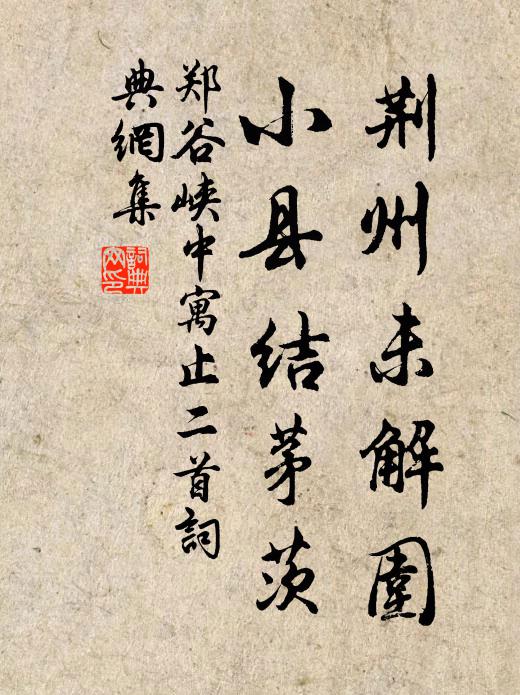 荆州未解圍
小县结茅茨
郑谷峡中寓止二首詞
典網集
詞典網印